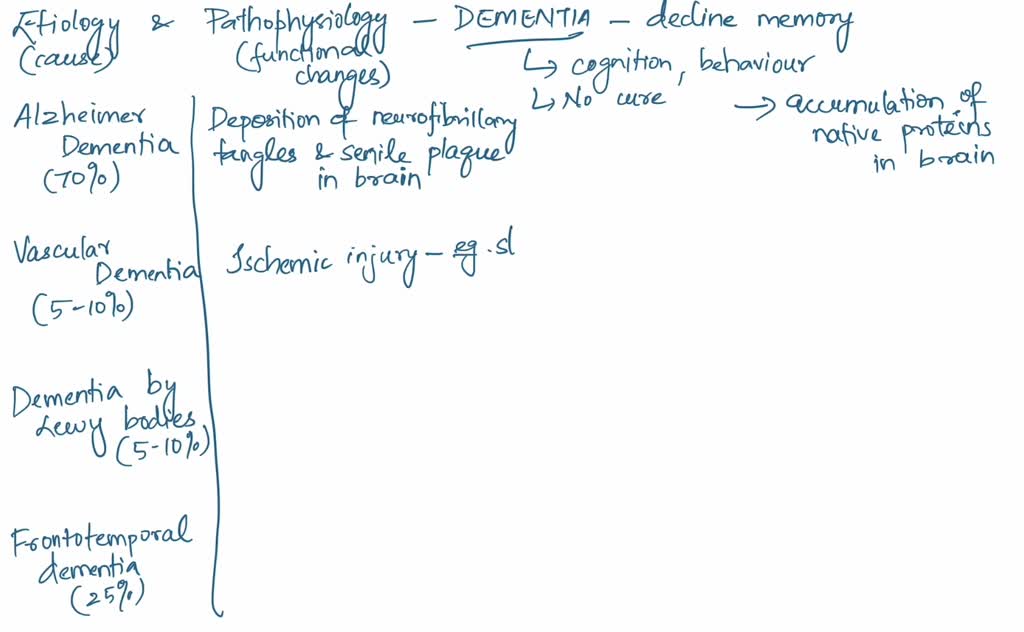 Etiology & Pathophysiology - DEMENTIA - decline memory
(cause) (functional changes)
↳ cognition, behaviour
↳ No cure
→ accumulation of
native proteins
in brain
Alzheimer
Dementia
(70%)
Deposition of neurofibrillary
tangles & senile plaque
in brain
Vascular
Dementia
(5-10%)
Ischemic injury - eg. st
Dementia by
Lewy bodies
(5-10%)
Frontotemporal
dementia
(25%)